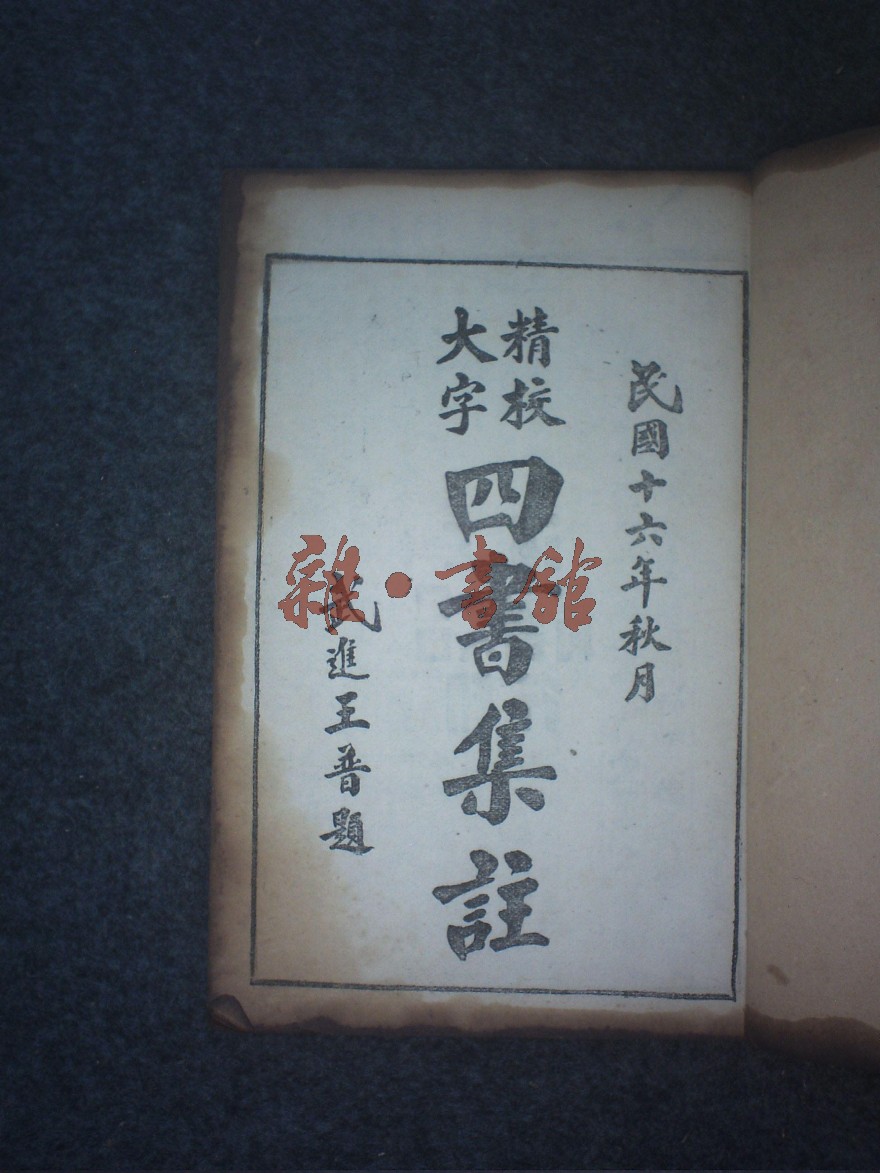 民國十六年秋月
精校
大字
四書集註
武進王普題
雜·書館